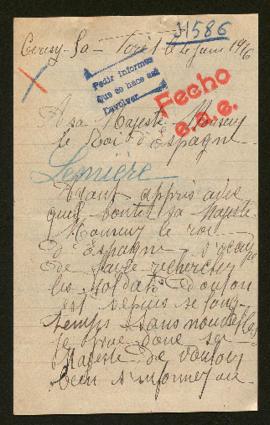 J1586
Cerisy-la- le 6 juin 1916
Pedir informes
que se hace así
Fecho
e.a.e.
A sa Majesté Monsieur
le Roi d'Espagne
Lemière
Ayant appris avec
quel bonté sa Majesté
Monsieur le roi
d'Espagne
de faire rechercher
les soldats dont on
est depuis si long
temps sans nouvelles
je prie donc sa
Majesté de vouloir
bien s'informer